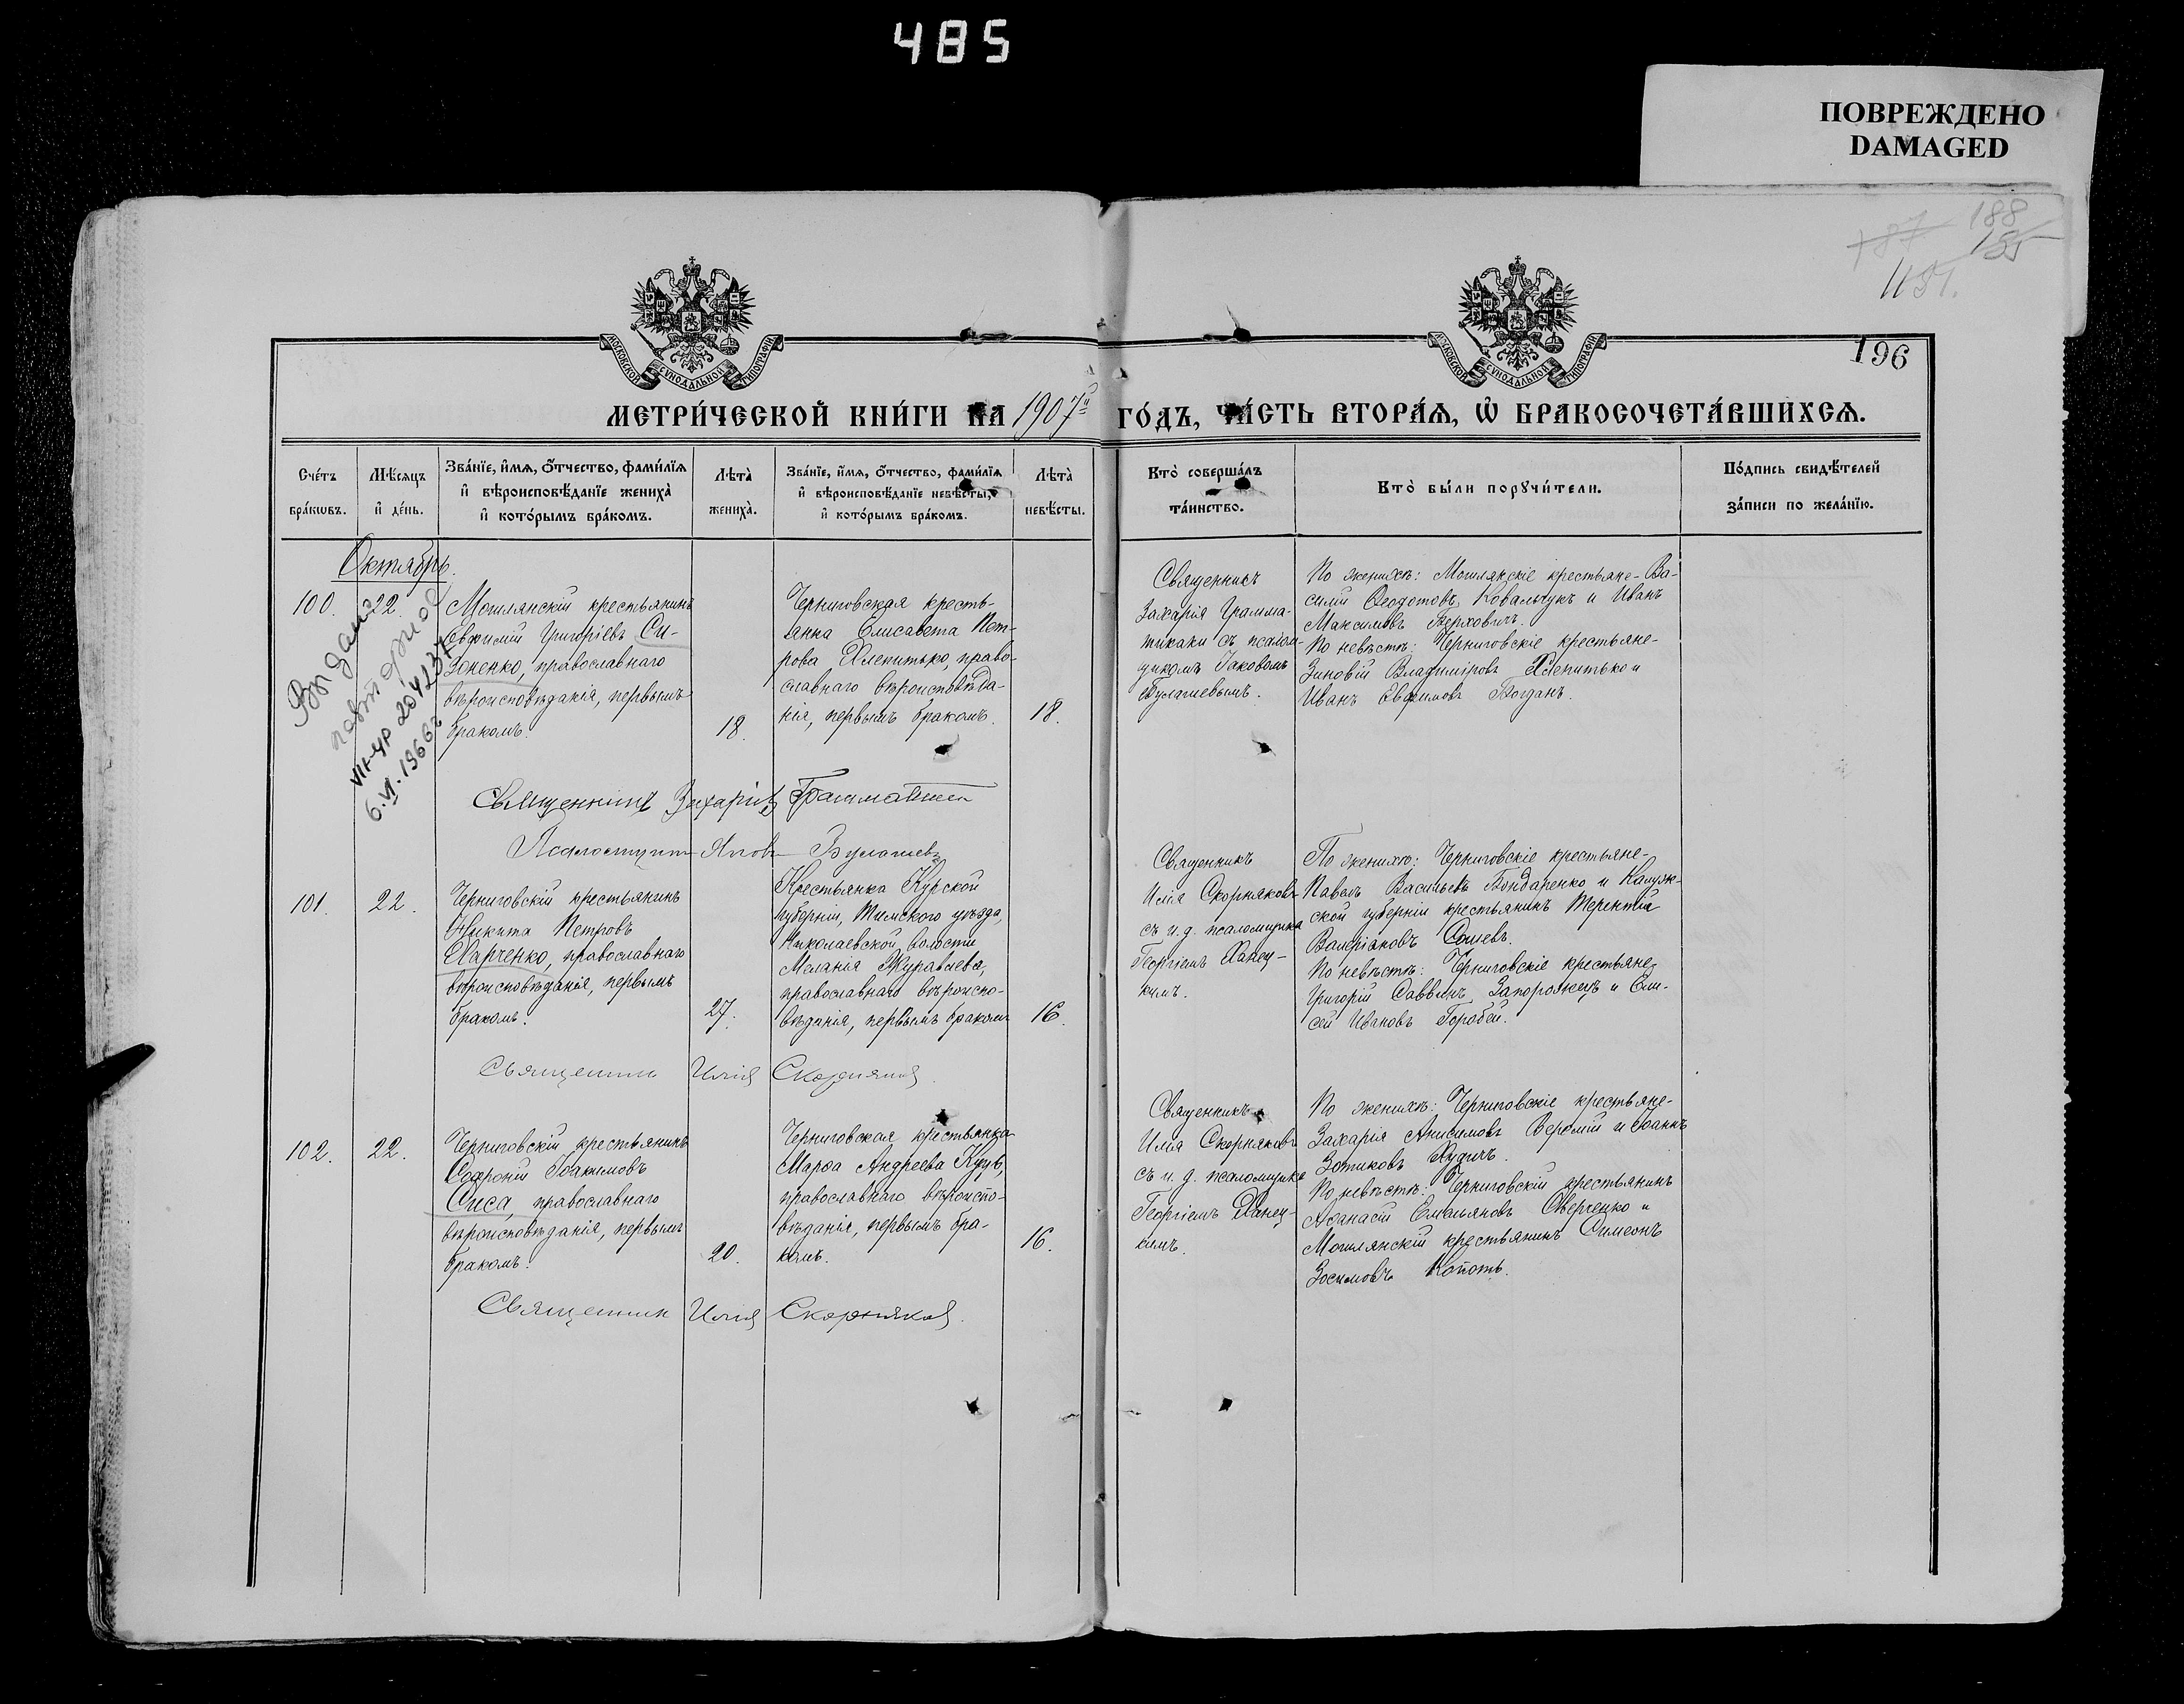 485
ПОВРЕЖДЕНО
DAMAGED
188
187
155
1131.
196
МОСКОВСКОЙ СѴНОДАЛЬНОЙ ТИПОГРАФІИ
МОСКОВСКОЙ СѴНОДАЛЬНОЙ ТИПОГРАФІИ
МЕТРИ́ЧЕСКОЙ КНИ́ГИ НА 1907й ГО́ДЪ, ЧА́СТЬ ВТОРА́Ѧ, Ѡ҆ БРАКОСОЧЕТА́ВШИХСѦ.
Сче́тъ
бра́кѡвъ.
Мѣ́сяцъ
и҆ де́нь.
Зва́нїе, и҆́мѧ, о҆́тчество, фами́лїѧ
и҆ вѣроисповѣ́данїе жениха̀
и҆ кото́рымъ бра́комъ.
Лѣта̀
жениха̀.
Зва́нїе, и҆́мѧ, о҆́тчество, фами́лїѧ
и҆ вѣроисповѣ́данїе невѣ́сты,
и҆ кото́рымъ бра́комъ.
Лѣта̀
невѣ́сты.
Кто̀ соверша́лъ
та́инство.
Кто̀ бы́ли порꙋчи́тели.
По́дпись свидѣ́телей
за́писи по жела́нїю.
Октябрь.
100.
22.
Могилянскій крестьянинъ
Евфимій Григоріевъ Си-
доненко, православнаго
вѣроисповѣданія, первымъ
бракомъ.
18.
Черниговская кресть-
янка Елисавета Пет-
рова Хлепитько, право-
славнаго вѣроисповѣда-
нія, первымъ бракомъ.
18.
Священникъ
Захарія Грамма-
тикаки съ псалом-
щикомъ Іаковомъ
Булашевымъ.
По женихѣ: Могилянскіе крестьяне- Ва-
силій Ѳеодотовъ Ковальчукъ и Иванъ
Максимовъ Верховичъ.
По невѣстѣ: Черниговскіе крестьяне-
Зиновій Владиміровъ Хлепитько и
Иванъ Евфимовъ Богданъ.
Выдано
повторное
VII-УР 204237
6.VI.1966г
Священникъ Захарія
Псаломщикъ Яковъ Булашевъ
101.
22.
Черниговскій крестьянинъ
Никита Петровъ
Харченко, православнаго
вѣроисповѣданія, первымъ
бракомъ.
27.
Крестьянка Курской
губерніи, Тимского уѣзда,
Николаевской волости
Меланія Журавлева,
православнаго вѣроиспо-
вѣданія, первымъ бракомъ
16.
Священникъ
Илія Скорняковъ
съ и. д. псаломщика
Георгіемъ Ханец-
кимъ.
По женихѣ: Черниговскіе крестьяне-
Павелъ Васильевъ Бондаренко и Калуж-
ской губерніи крестьянинъ Терентій
Валеріановъ
По невѣстѣ: Черниговскіе крестьяне
Григорій Саввинъ Запорожецъ и Ели-
сей Ивановъ Горобей.
Священникъ Илія Скорняковъ
102.
22.
Черниговскій крестьянинъ
Софроній Іоакимовъ
Сиса, православнаго
вѣроисповѣданія, первымъ
бракомъ.
20.
Черниговская крестьянка
Марѳа Андреева Куцъ,
православнаго вѣроиспо-
вѣданія, первымъ бра-
комъ.
16.
Священникъ
Илія Скорняковъ
съ и. д. псаломщика
Георгіемъ Ханец-
кимъ.
По женихѣ: Черниговскіе крестьяне-
Захарія Анисимовъ Веремій и Іоаннъ
Зотиковъ
По невѣстѣ: Черниговскій крестьянинъ
Аѳанасій Емельяновъ Сверченко и
Могилянскій крестьянинъ Симеонъ
Зосимовъ Копоть.
Священникъ Илія Скорняковъ